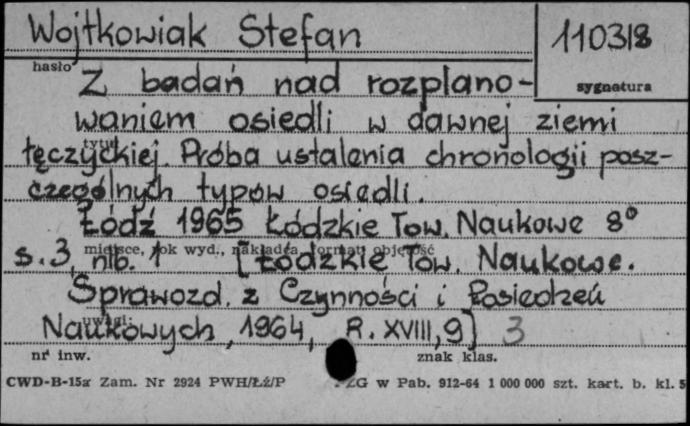 Wojtkowiak Stefan
110318
hasło
sygnatura
Z badań nad rozplano-
waniem osiedli w dawnej ziemi
tytuł
łęczyckiej. Próba ustalenia chronologii posz-
czególnych typów osiedli.
Łódź 1965 Łódzkie Tow. Naukowe 8°
miejsce, rok wyd., nakładca, format, objętość
s. 3, nlb. 1 [Łódzkie Tow. Naukowe.
Sprawozd. z Czynności i Posiedzeń
uwagi
Naukowych, 1964, R. XVIII, 9] 3
nr inw.
znak klas.
CWD-B-15a Zam. Nr 2924 PWH/Łź/P
ZG w Pab. 912-64 1 000 000 szt. kart. b. kl. 5